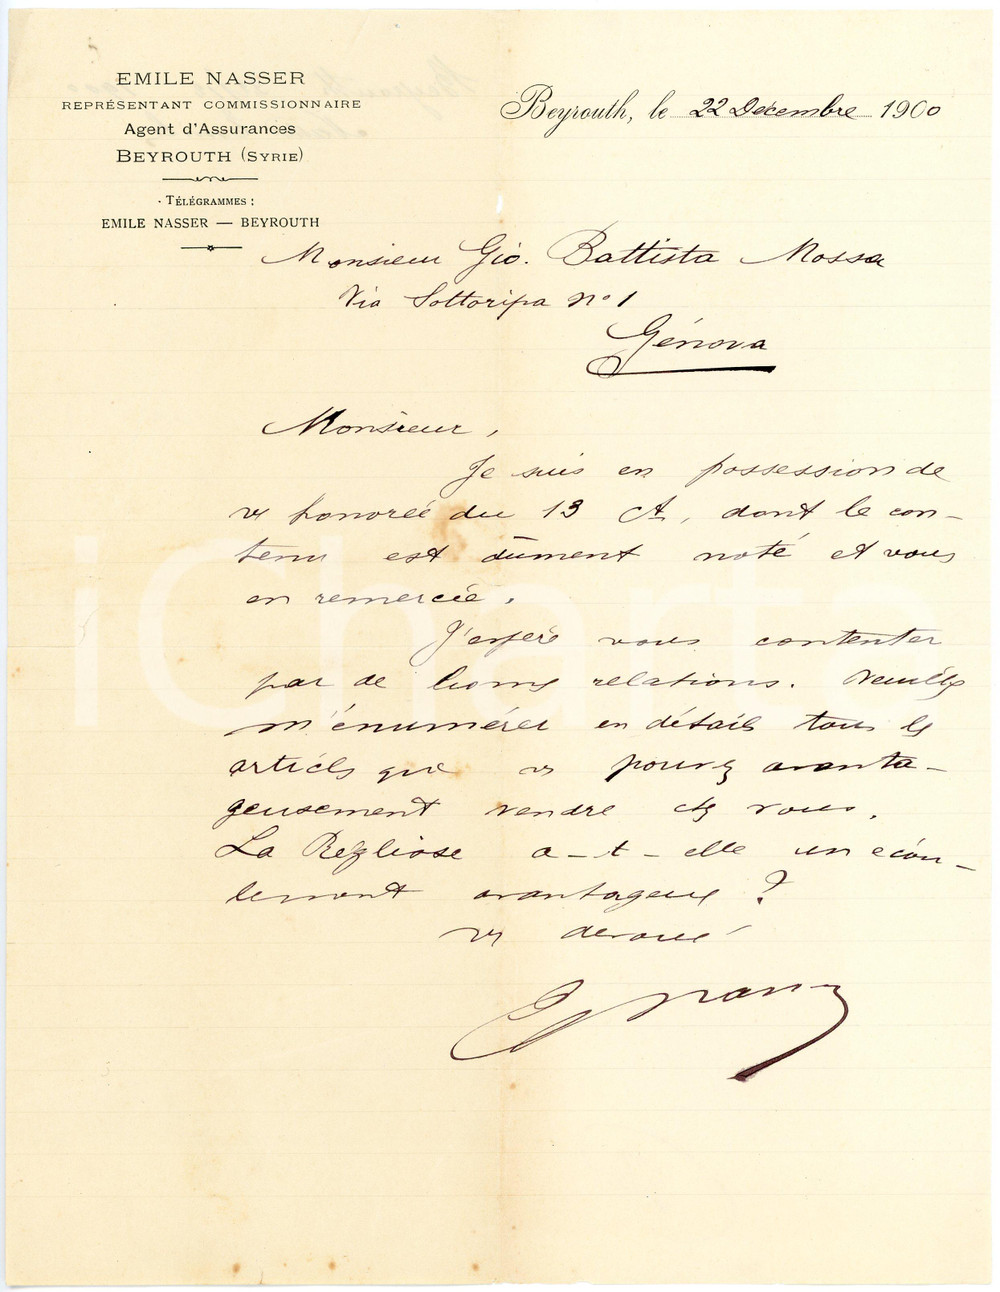 EMILE NASSER
REPRÉSENTANT COMMISSIONNAIRE
Agent d'Assurances
BEYROUTH (SYRIE)
TÉLÉGRAMMES :
EMILE NASSER — BEYROUTH
Beyrouth, le 22 Décembre 1900
Monsieur Gio. Battista Mossa
Via Sottoripa No 1
Génova
Monsieur,
Je suis en possession de
vs honorée du 13 Ct, dont le con-
tenu est dûment noté et vous
en remercie.
J'espère vous contenter
par de bonnes relations. Veuillez
m'énumérer en détails tous les
articles que vs pouvez avanta-
geusement vendre chez vous.
La Réglisse a-t-elle un écou-
lement avantageux ?
vs dévoué
E Nasser
iCharta